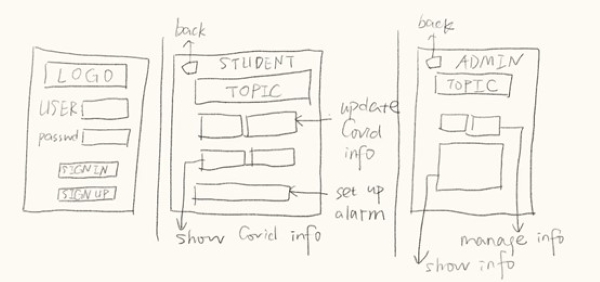 LOGO
USER
passwd
SIGN IN
SIGN UP
back
STUDENT
TOPIC
update
Covid
info
set up
alarm
show Covid info
back
ADMIN
TOPIC
manage info
show info